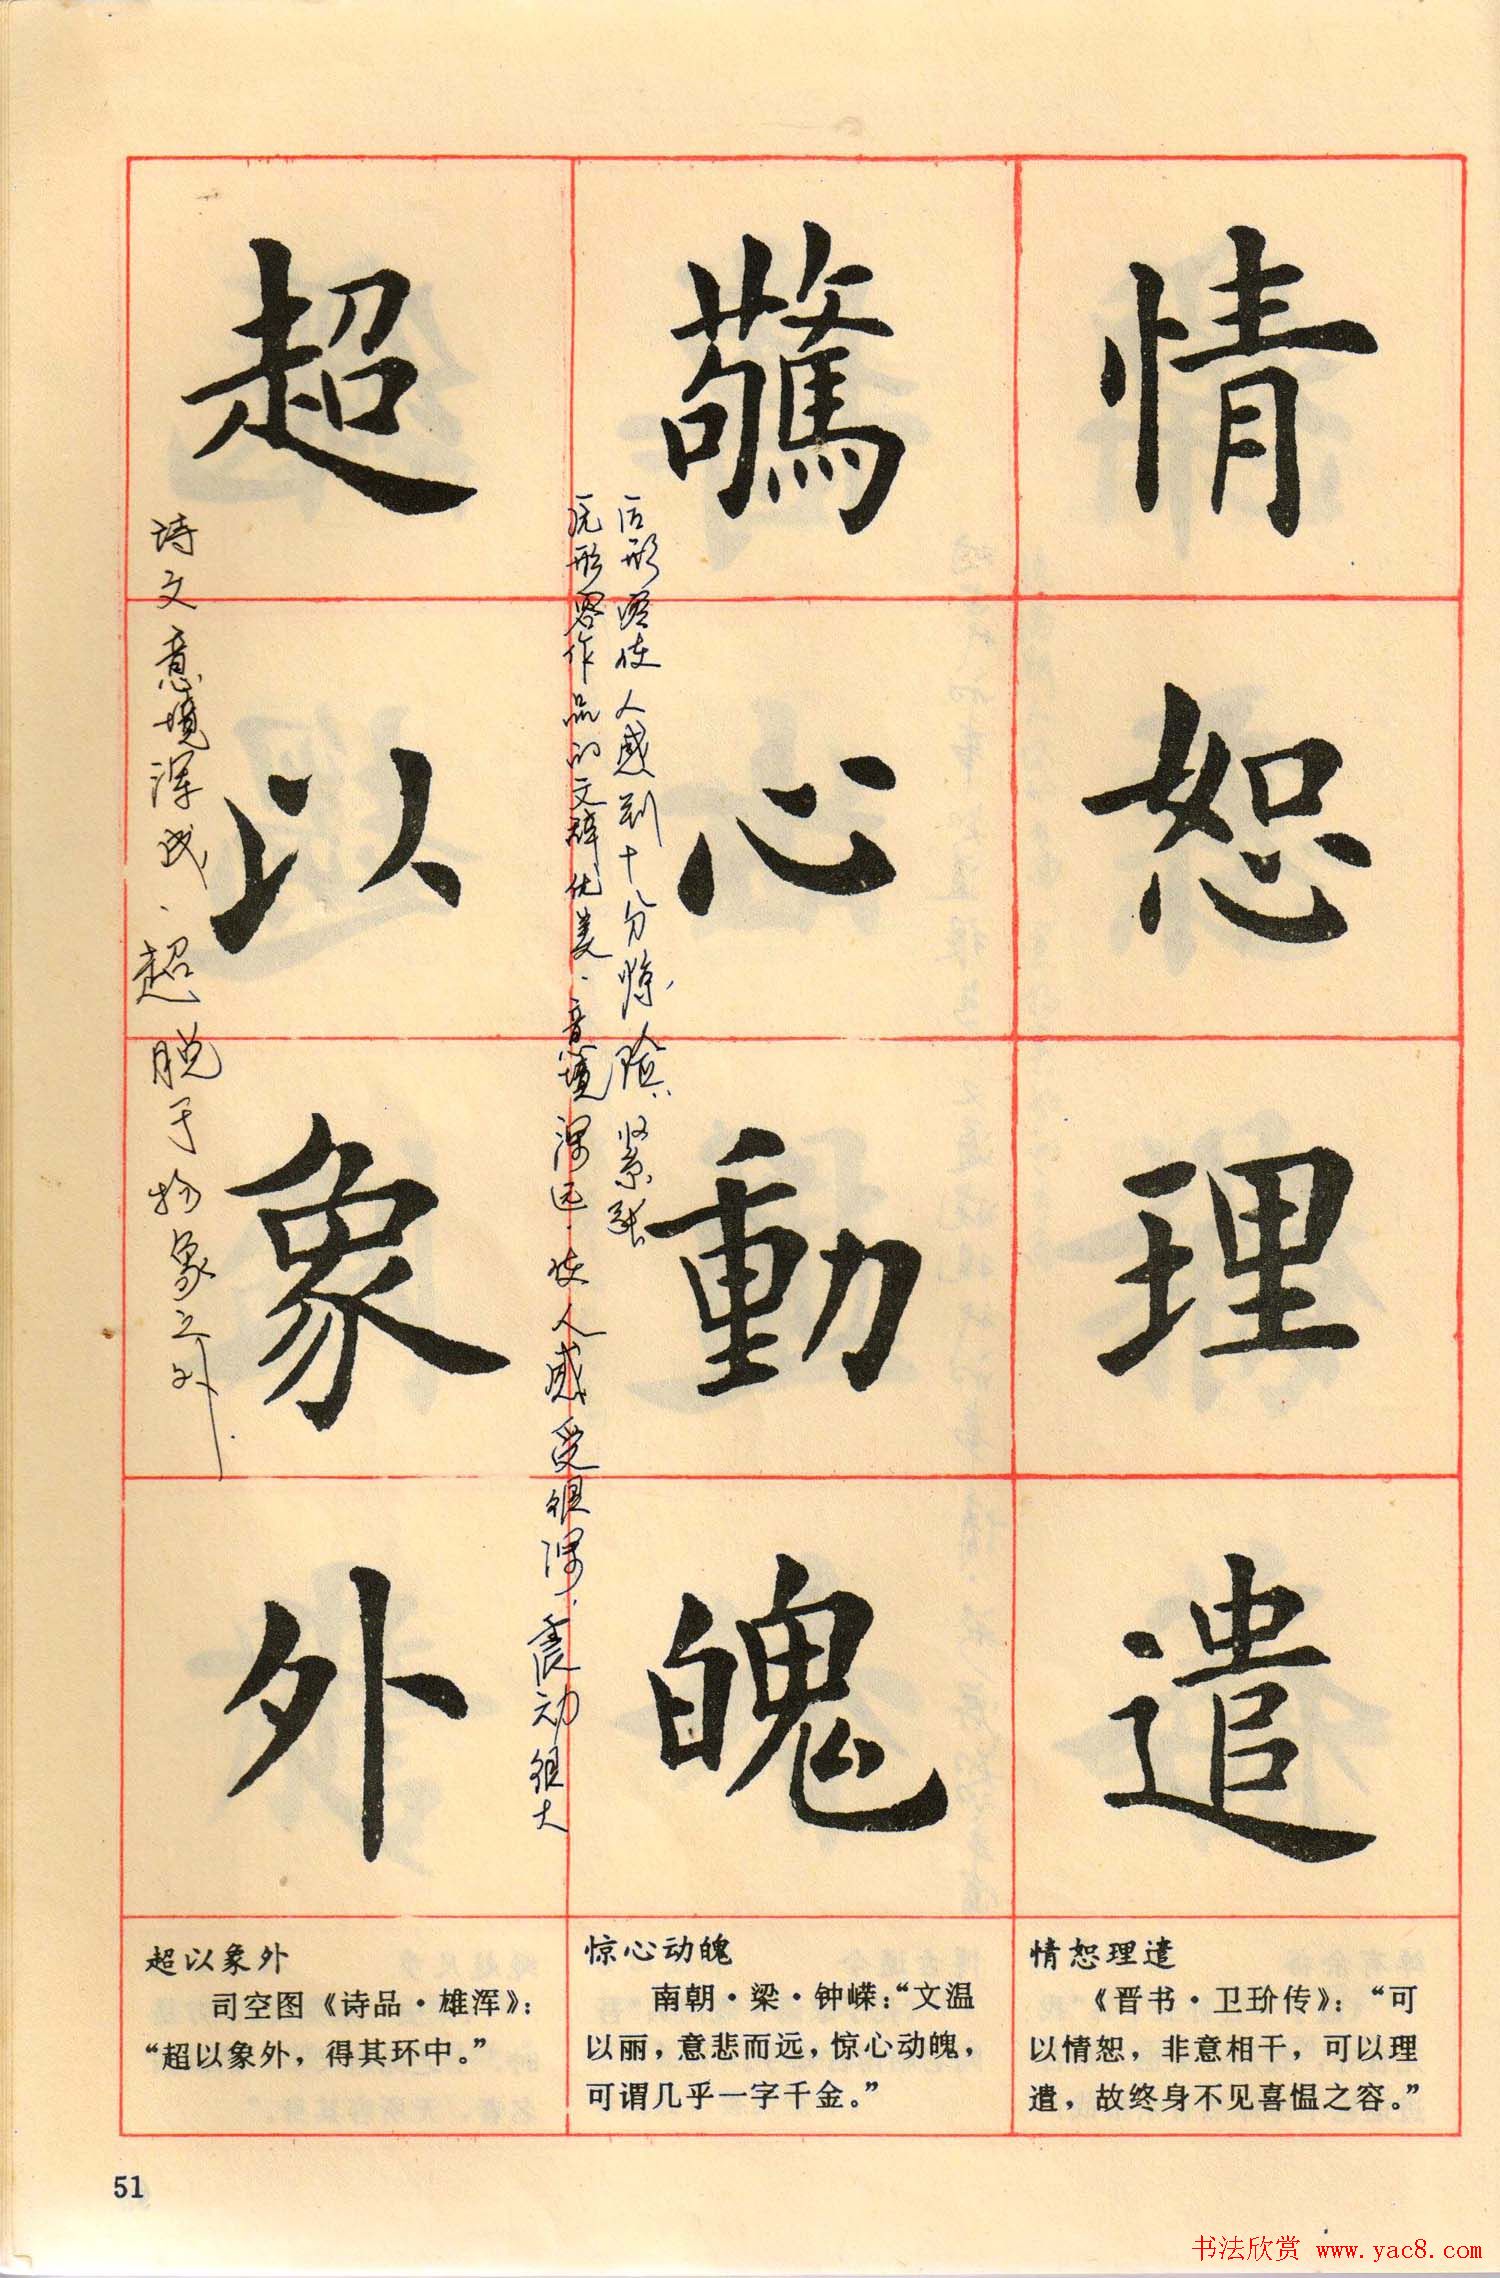 情恕理遣
驚心動魄
超以象外
原形容作品的文辞优美、意境深远、使人感受很深、震动很大
后形容使人感到十分惊险、紧张
诗文意境浑成、超脱于物象之外
情恕理遣
《晋书·卫玠传》：“可
以情恕，非意相干，可以理
遣，故终身不见喜愠之容。”
惊心动魄
南朝·梁·钟嵘：“文温
以丽，意悲而远，惊心动魄，
可谓几乎一字千金。”
超以象外
司空图《诗品·雄浑》：
“超以象外，得其环中。”
51
书法欣赏 www.yac8.com